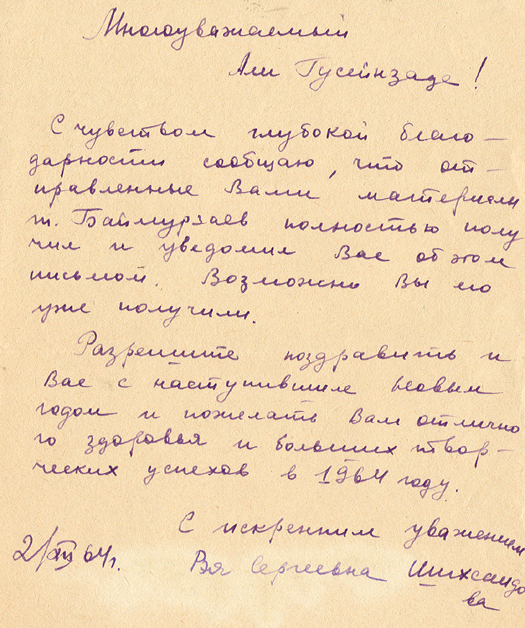 Многоуважаемый
Али Гусейнзаде!
С чувством глубокой благо-
дарности сообщаю, что от-
правленные Вами материалы
т. Баймурзаев полностью полу
чил и уведомил Вас об этом
письмом. Возможно Вы его
уже получили.
Разрешите поздравить и
Вас с наступившим Новым
годом и пожелать Вам отлично
го здоровья и больших твор-
ческих успехов в 1964 году.
С искренним уважением
2/XII 64 г. Сергеевна Шихсаидо
ва